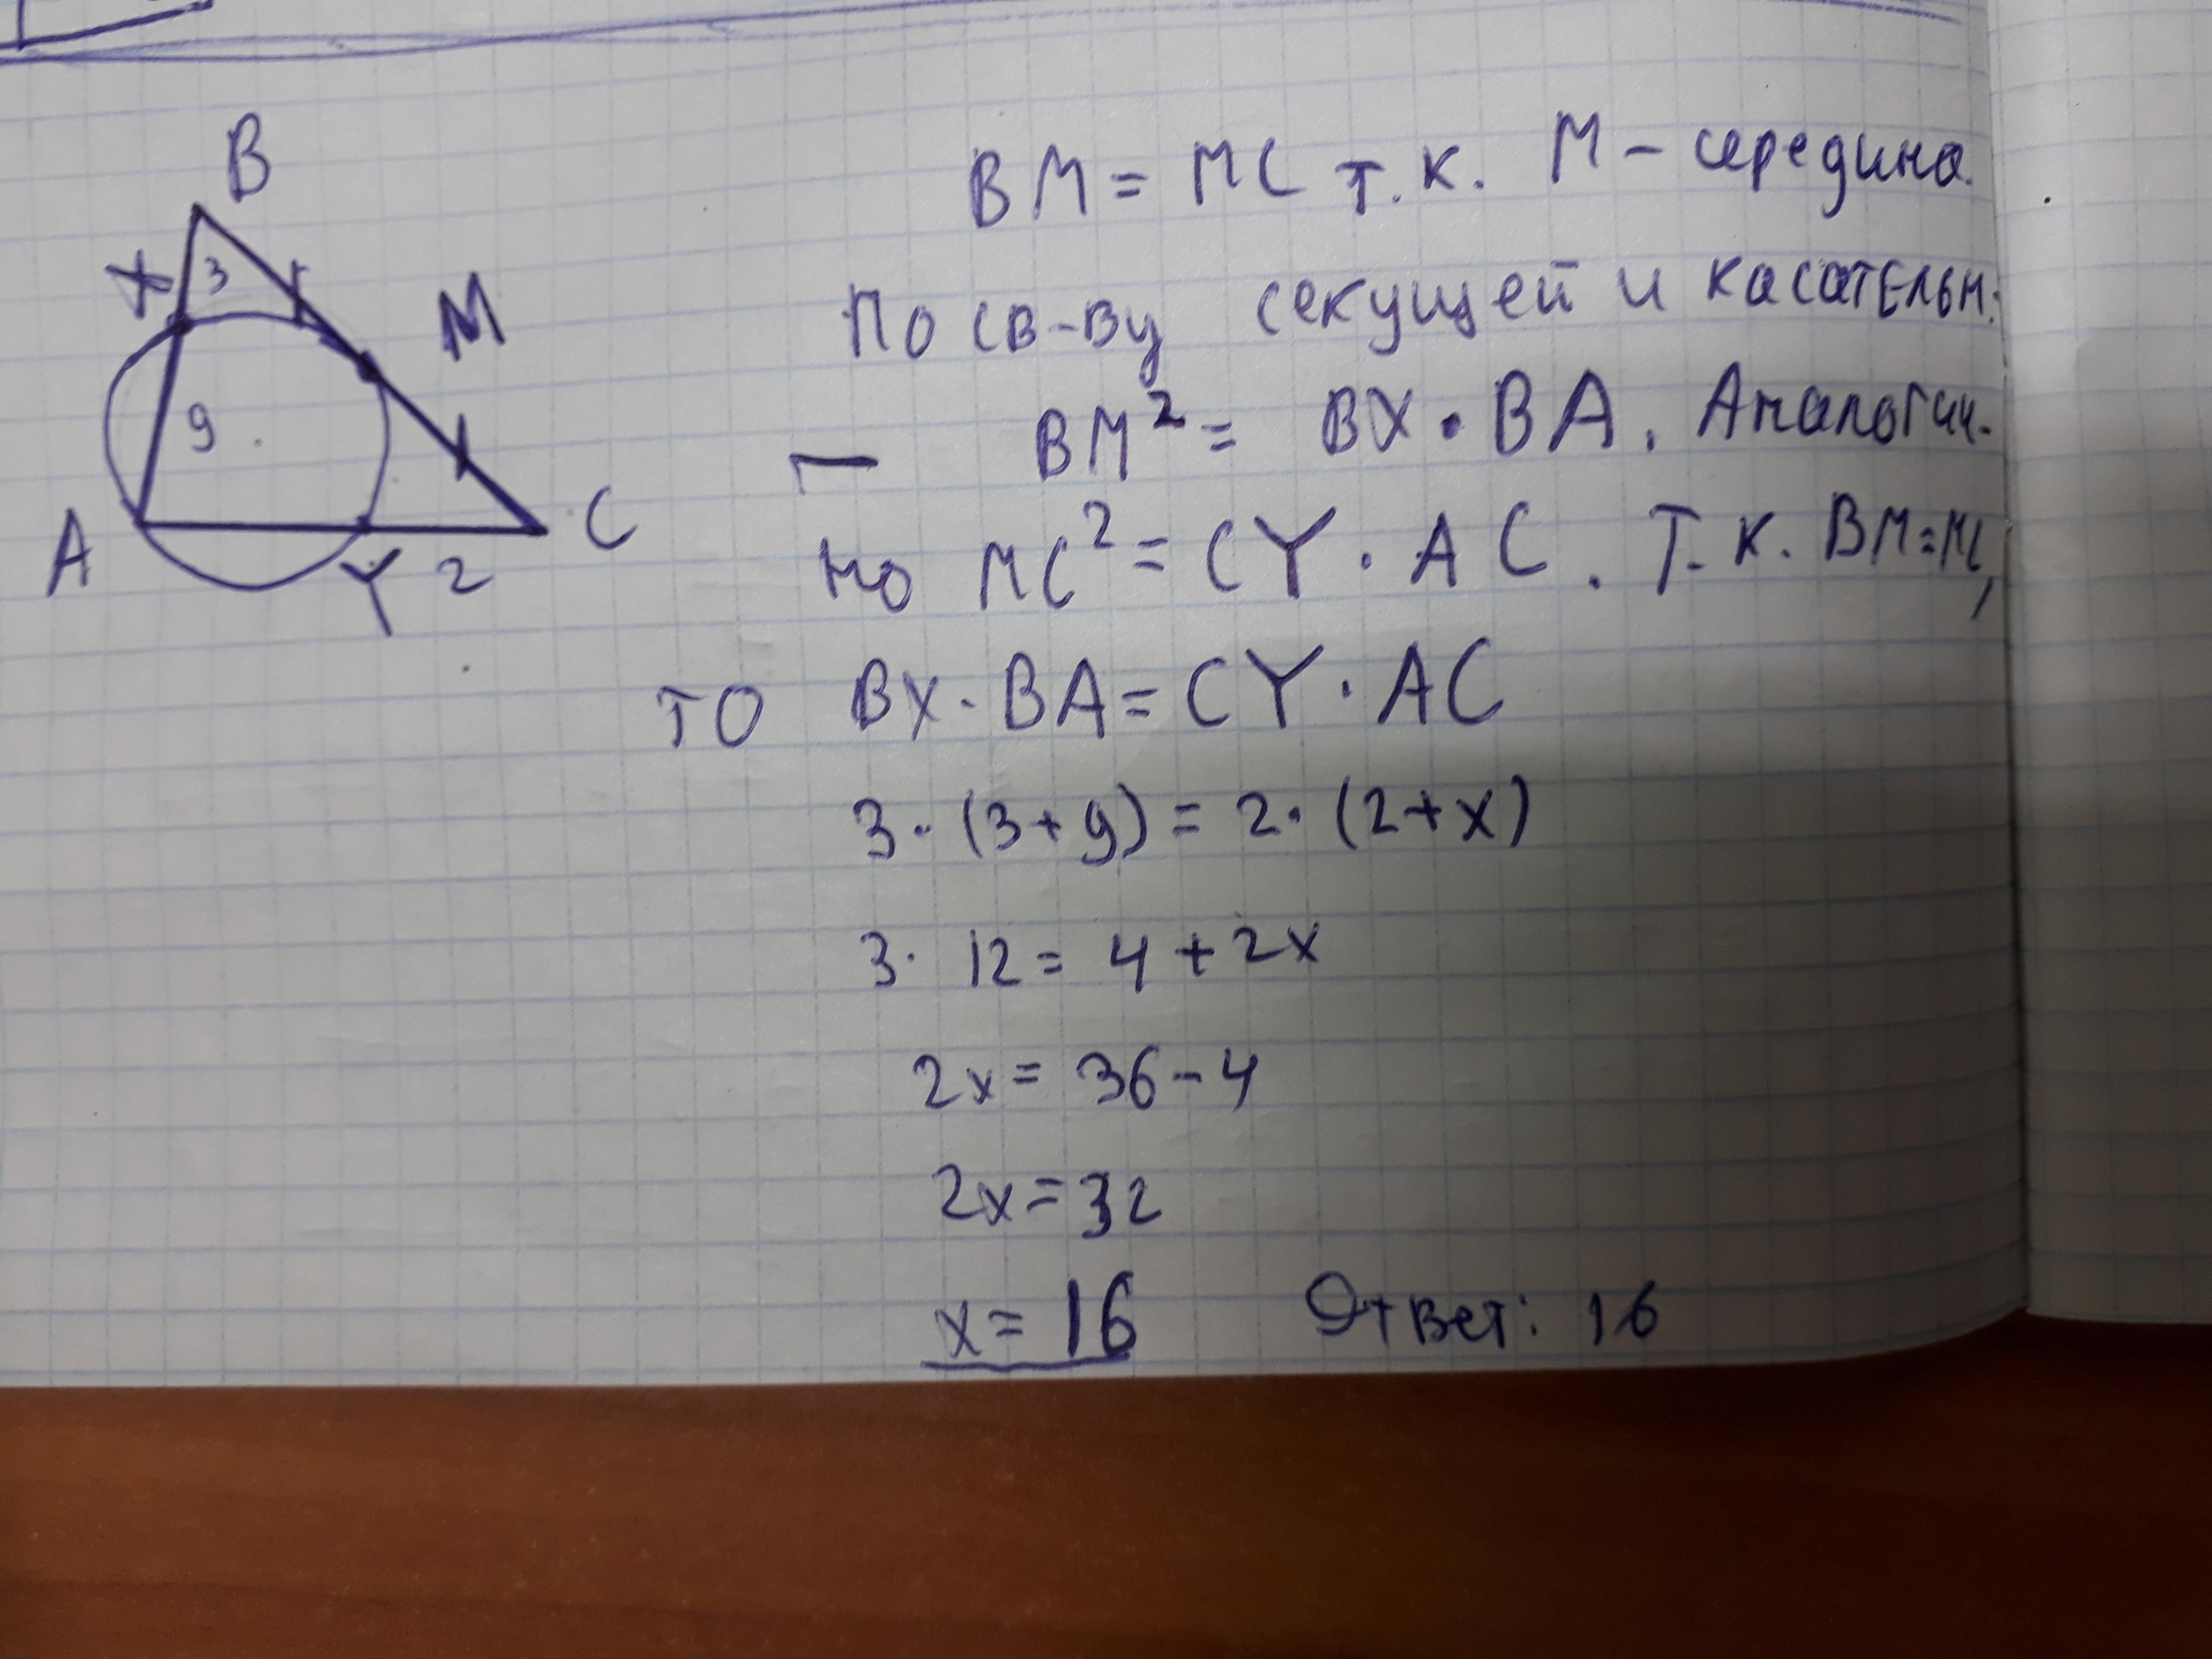 B
X 3
M
9
A
C
Y 2
BM = MC т.к. M – середина.
По св-ву секущей и касательн.
— BM² = BX · BA. Аналогич-
но MC² = CY · AC. Т.к. BM=MC,
то BX · BA = CY · AC
3 · (3+9) = 2 · (2+x)
3 · 12 = 4 + 2x
2x = 36 – 4
2x = 32
x = 16 Ответ: 16